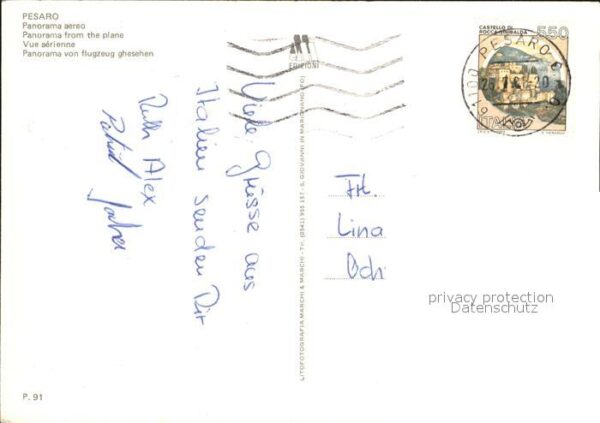 PESARO
Panorama aereo
Panorama from the plane
Vue aérienne
Panorama von flugzeug ghesehen
EDIZIONI
CASTELLO DI
ROCCA URBALDA
550
ITALIA
PESARO
Viele Grüsse aus
Italien senden Dir
Ruth Alex
LITOFOTOGRAFIA MARCHI & MARCHI - TEL. (0541) 955 157 - S. GIOVANNI IN MARIGNANO (FO)
Frl.
Lina
Och
privacy protection
Datenschutz
P. 91